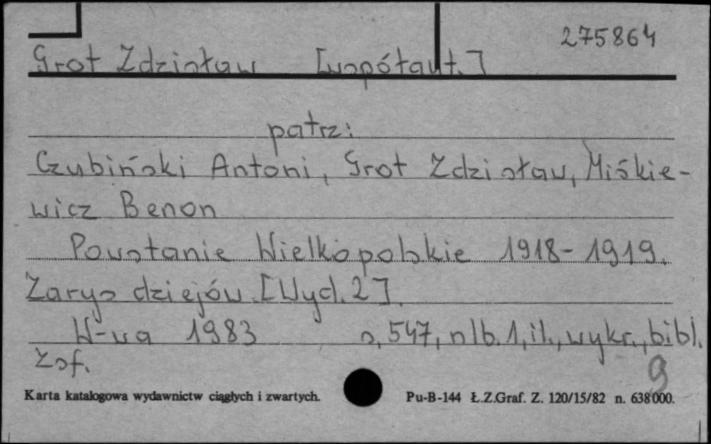 275864
Grot Zdzisław [współaut.]
patrz:
Czubiński Antoni, Grot Zdzisław, Miśkie-
wicz Benon
Powstanie Wielkopolskie 1918-1919.
Zarys dziejów. [Wyd. 2].
W-wa 1983 s. 547, nlb. 1, il., wykr., bibl.
Zsf.
9
Karta katalogowa wydawnictw ciągłych i zwartych. Pu-B-144 Ł.Z.Graf. Z. 120/15/82 n. 638000.